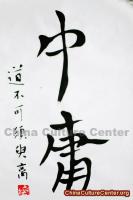 中庸
道不可須臾离
China Culture Center
ChinaCultureCenter.org